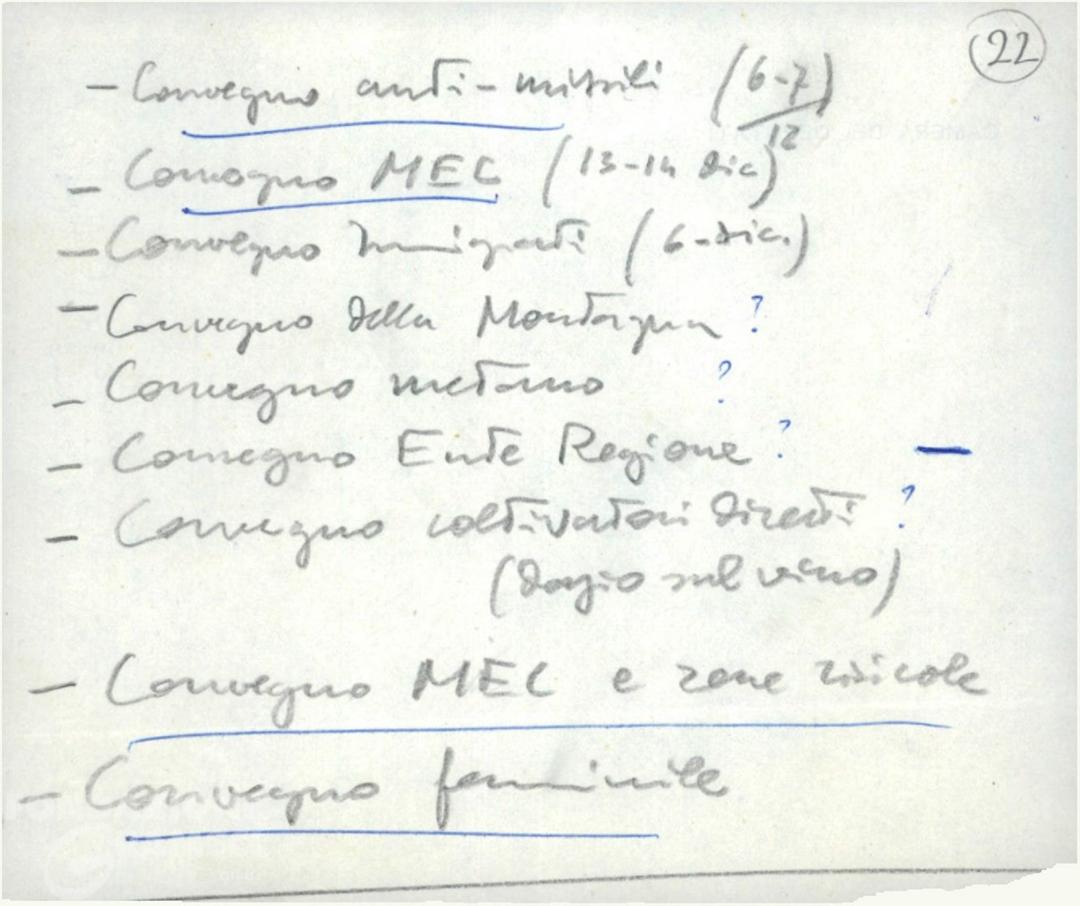 22
- Convegno anti-missili (6-7/12)
- Convegno MEC (13-14 dic)
- Convegno Immigrati (6-dic.)
- Convegno della Montagna ?
- Convegno metano ?
- Convegno Ente Regione ? —
- Convegno coltivatori diretti ?
(dazio sul vino)
- Convegno MEC e zone risicole
- Convegno femminile